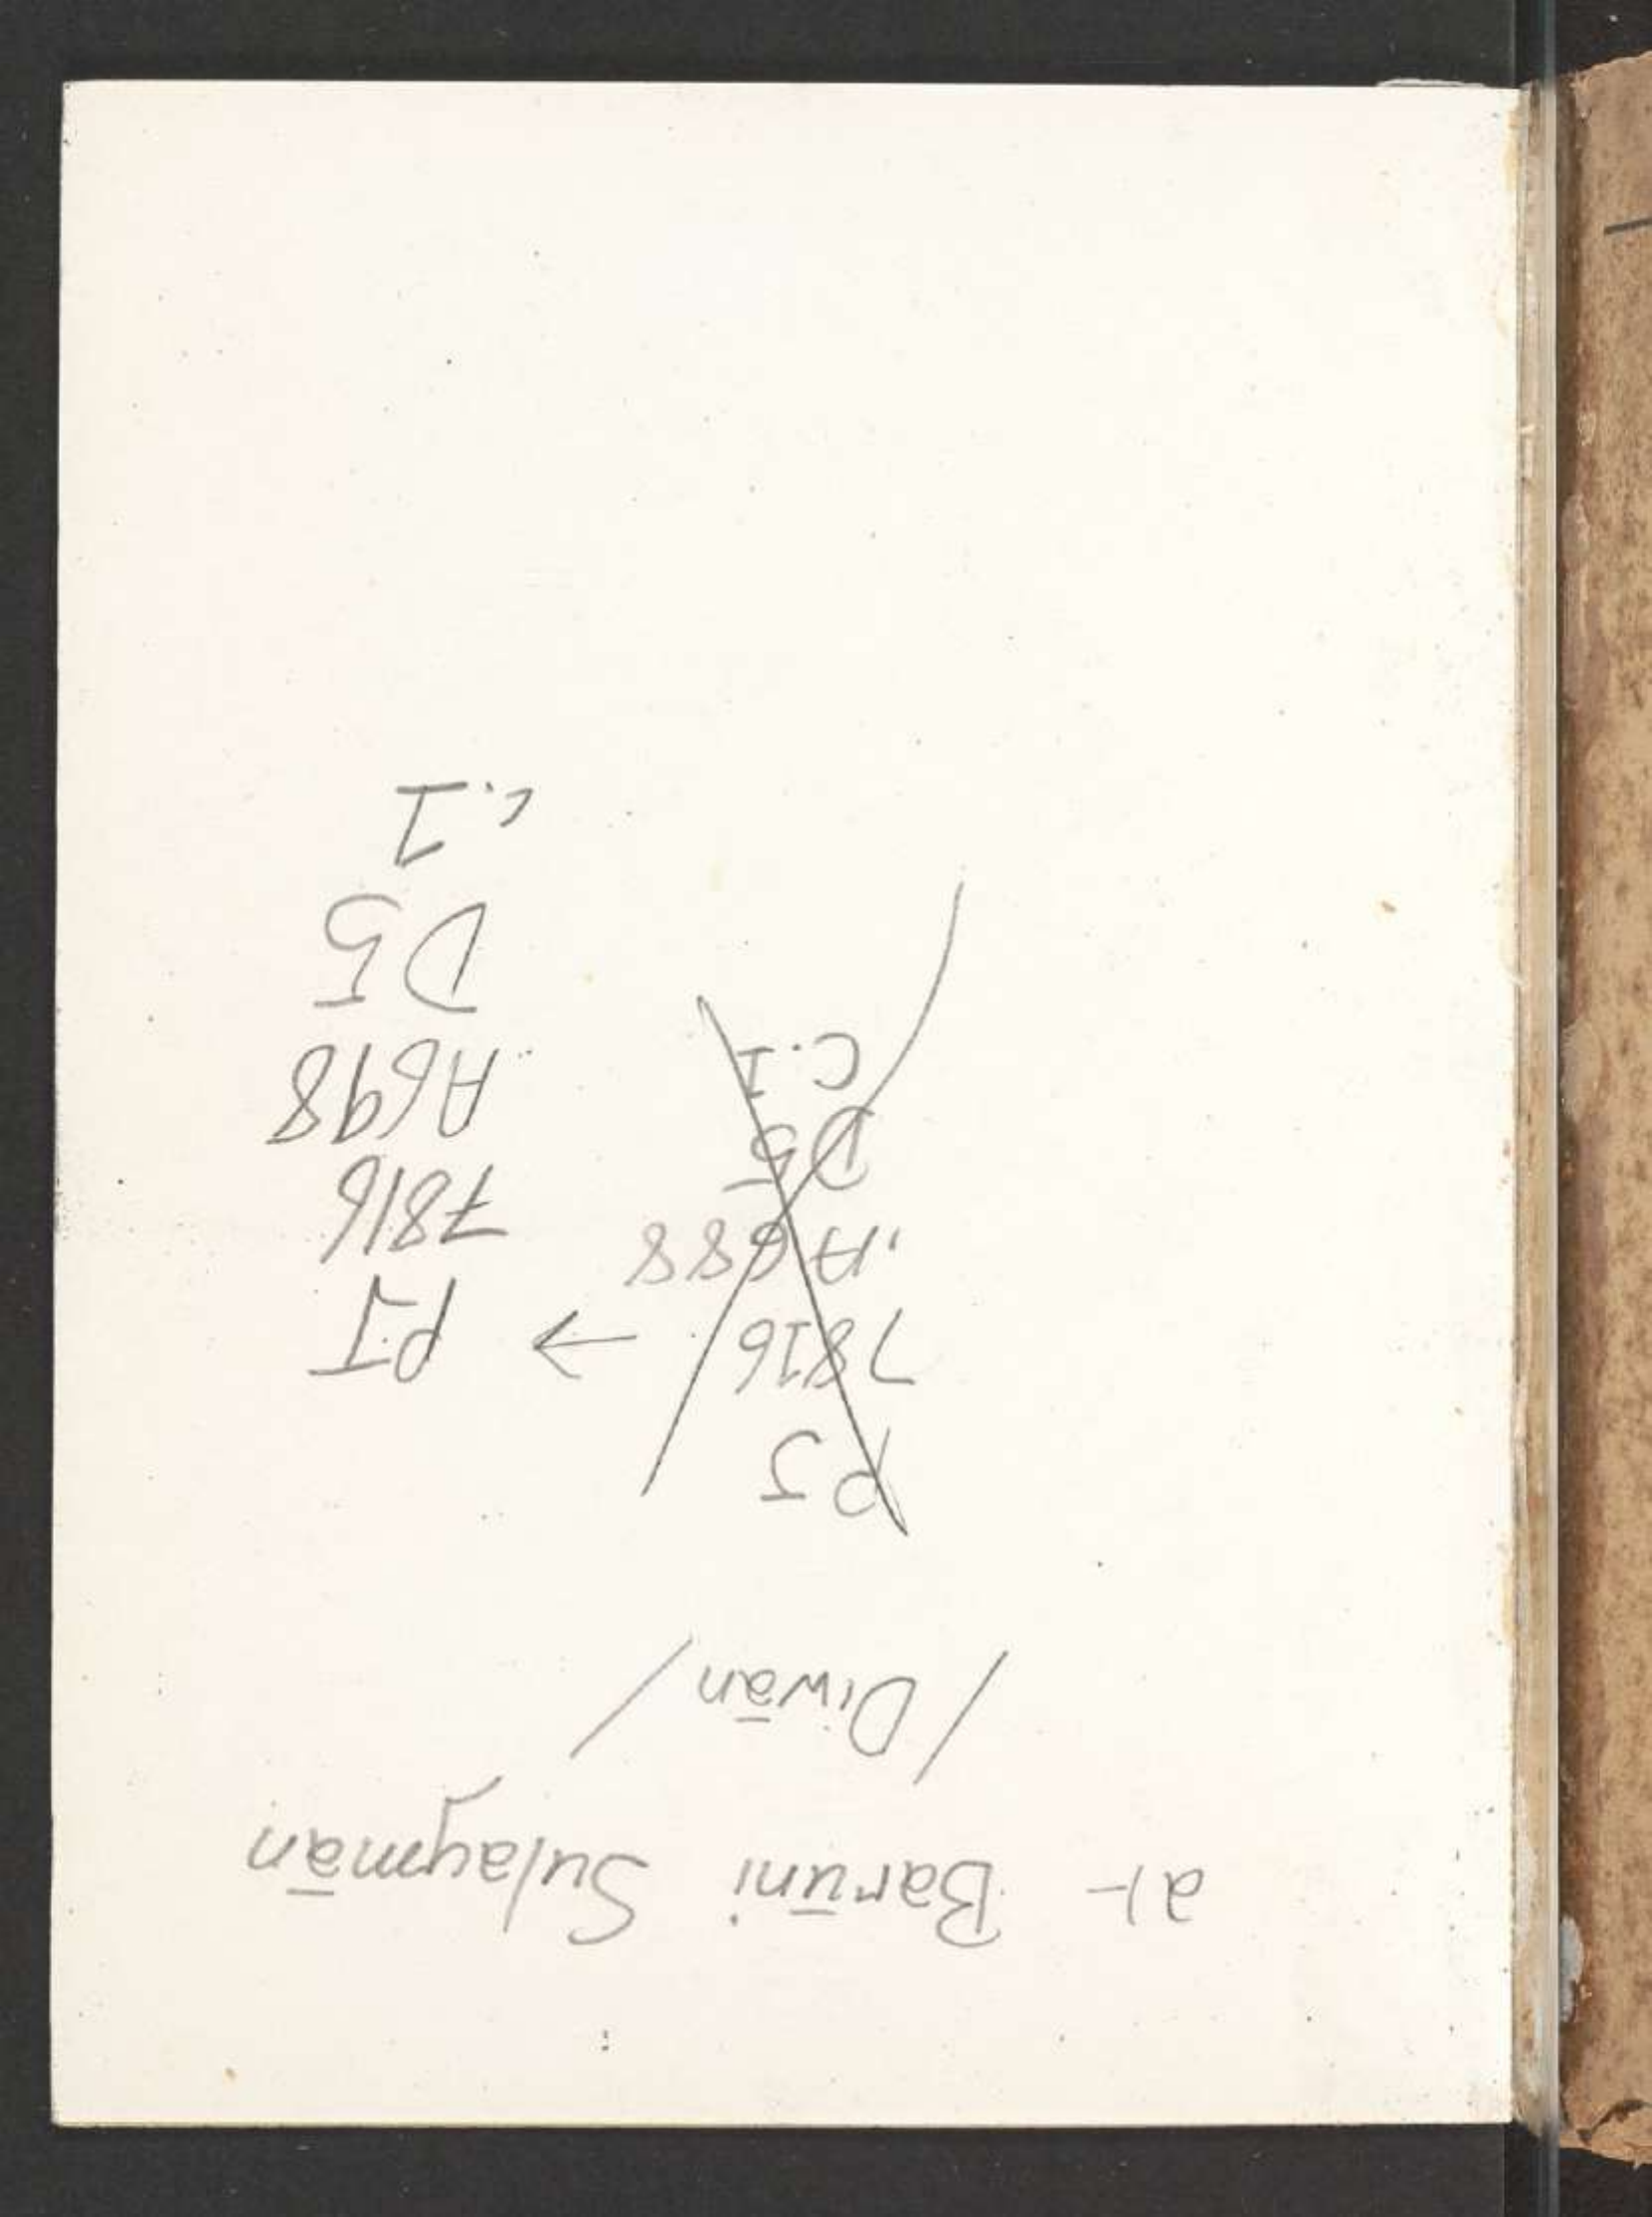 al- Barūni Sulaymān
/ Diwān /
PJ
7816
.A688
D5
C.1
→ PJ
7816
A698
D5
c.1